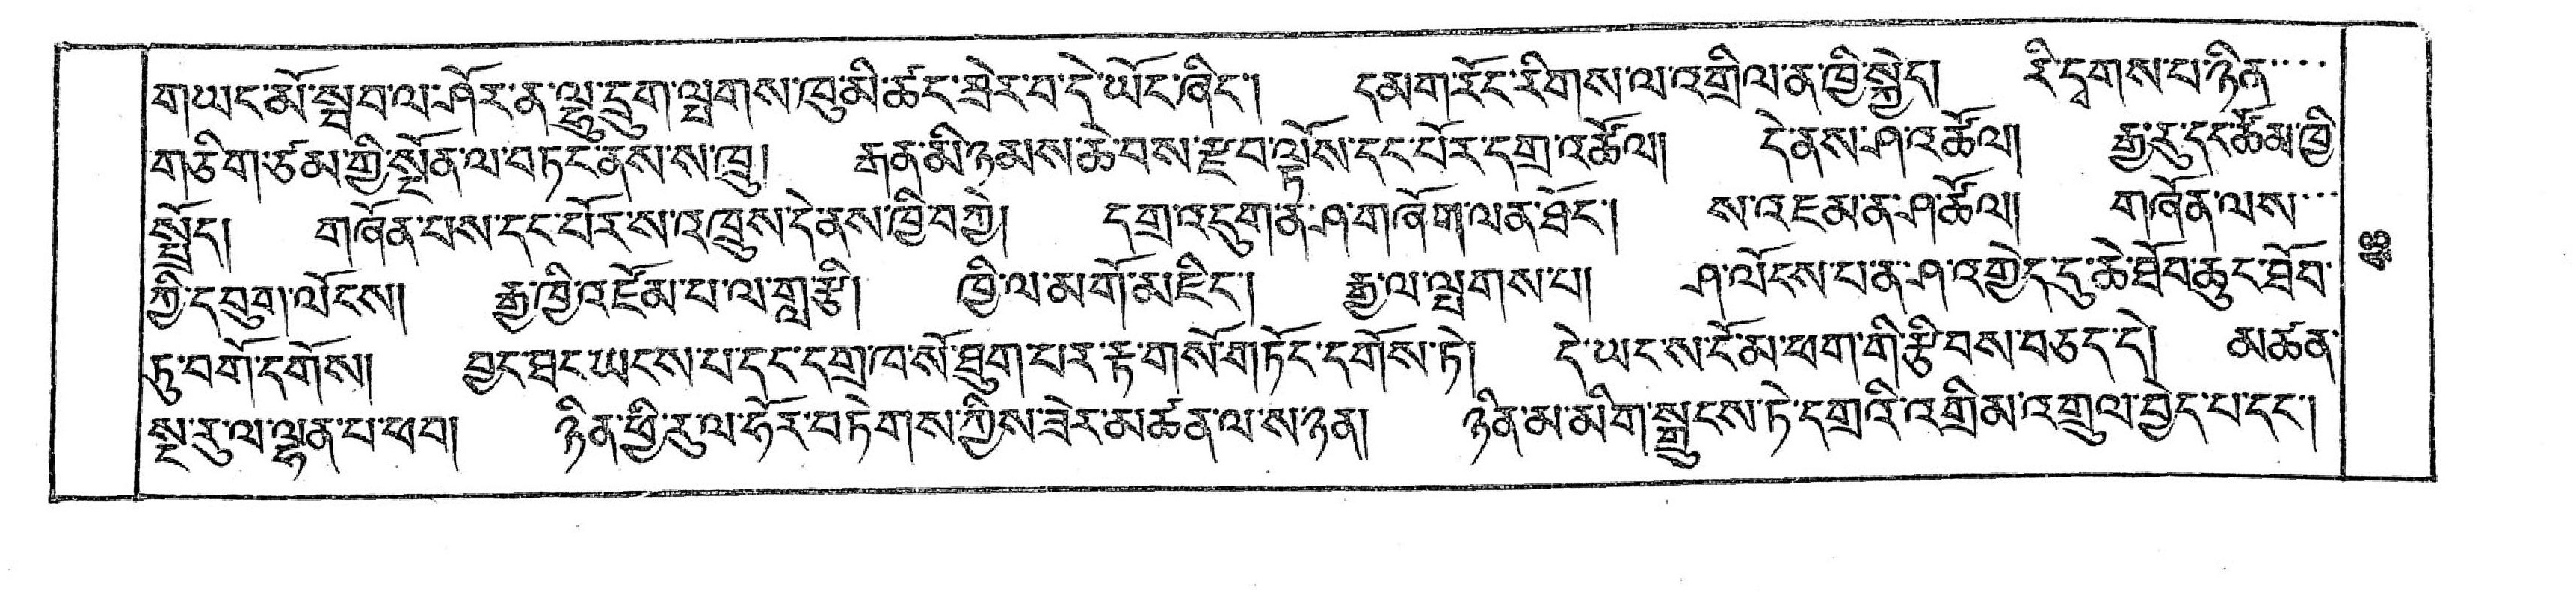 གཡང་མོ་སྦབ་ལ་ཤོར་ན་ལྷུ་དྲུག་ལྤགས་ཁུ་མི་ཚང་ཟེར་བ་དེ་ཡོང་ཞིང་། དམག་རོང་རིགས་ལ་འགྲིལ་ན་ཁྱི་སྐྱེད། རི་དྭགས་བ་ཉིན་
གཅིག་ཙམ་གྱི་སྔོན་ལ་བཏང་ནས་ས་ཁྲུ། རྒན་མི་ཉམས་ཆེ་བས་རྫབ་ལྟོས་དང་པོར་དགྲ་འཚོལ། དེ་ནས་ཤ་འཚོལ། རྒྱ་རུ་དང་ཚོམ་ཁྱི་
སྤྲོད། གཞོན་པས་དང་པོར་ས་འཁྲུས་དེ་ནས་ཁྱི་བཀྱེ། དགྲ་འདུག་ན་ཤ་གཞོག་ལན་ཐོང་། ས་འཇམ་ན་ཤ་ཚོལ། གཞོན་ལས་
ཀྱི་དབུག་ལོངས། རྒྱ་ཁྱི་འཛོམ་པ་ལ་གླ་རྩི། ཁྱི་ལ་མགོ་མཇིང་། རྒྱ་ལ་ལྤགས་པ། ཤ་ལོངས་པ་ན་ཤ་འགྱེད་དུ་ཆེ་ཐོབ་ཆུང་ཐོབ་
ཏུ་བགོ་དགོས། བྱང་ཐང་ཡངས་པ་དང་དགྲ་ཁ་སོ་ཐུག་པར་རྟ་གསོག་ཏོང་དགོས་ཏེ། དེ་ཡང་ས་ངོམ་ཕག་གི་རྩིབས་བཅད་དེ། མཚན་
སྔ་རུ་ལ་ལྷན་པ་ཕབ། ཉིན་ཕྱི་རུལ་ཧོར་བཏེགས་ཀྱིས་ཟེར་མཚན་ལ་ས་ཉན། ཉིན་མ་མིག་སྒྲུངས་ཏེ་དགྲའི་འགྲིམ་འགྲུལ་བྱེད་པ་དང་།